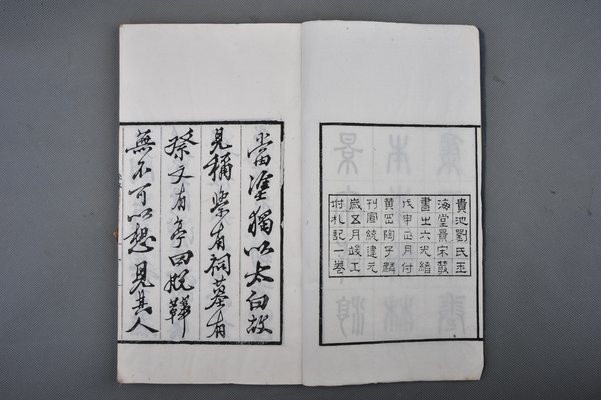 貴池劉氏玉
海堂景宋叢
書之六光緒
戊申正月付
黃岡陶子麟
刊宣統建元
歲五月竣工
坿札記一卷
當塗獨以太白故
見稱有祠墓有
祭又有亭曰脫鞾
無不可以想見其人